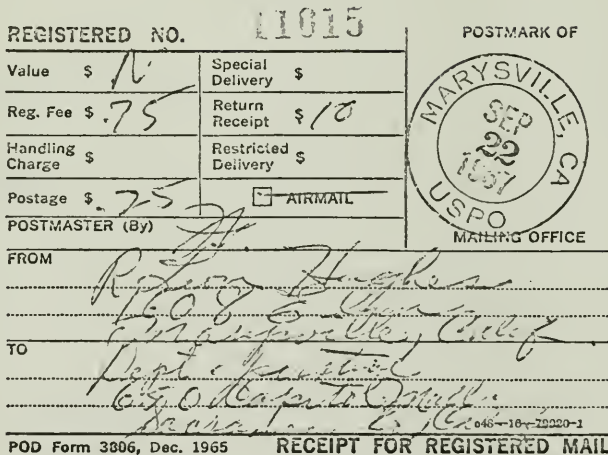 REGISTERED NO. 11615
POSTMARK OF
Value $ N
Special Delivery $
Reg. Fee $ .75
Return Receipt $ 10
Handling Charge $
Restricted Delivery $
Postage $ .25
AIRMAIL
MARYSVILLE, CA
SEP
22
1967
USPO
POSTMASTER (By)
MAILING OFFICE
FROM
Hughes
1608
Marysville, Calif
TO
Dept
650 Capitol Mall
Sacramento
c48-16-79920-1
POD Form 3806, Dec. 1965 RECEIPT FOR REGISTERED MAIL